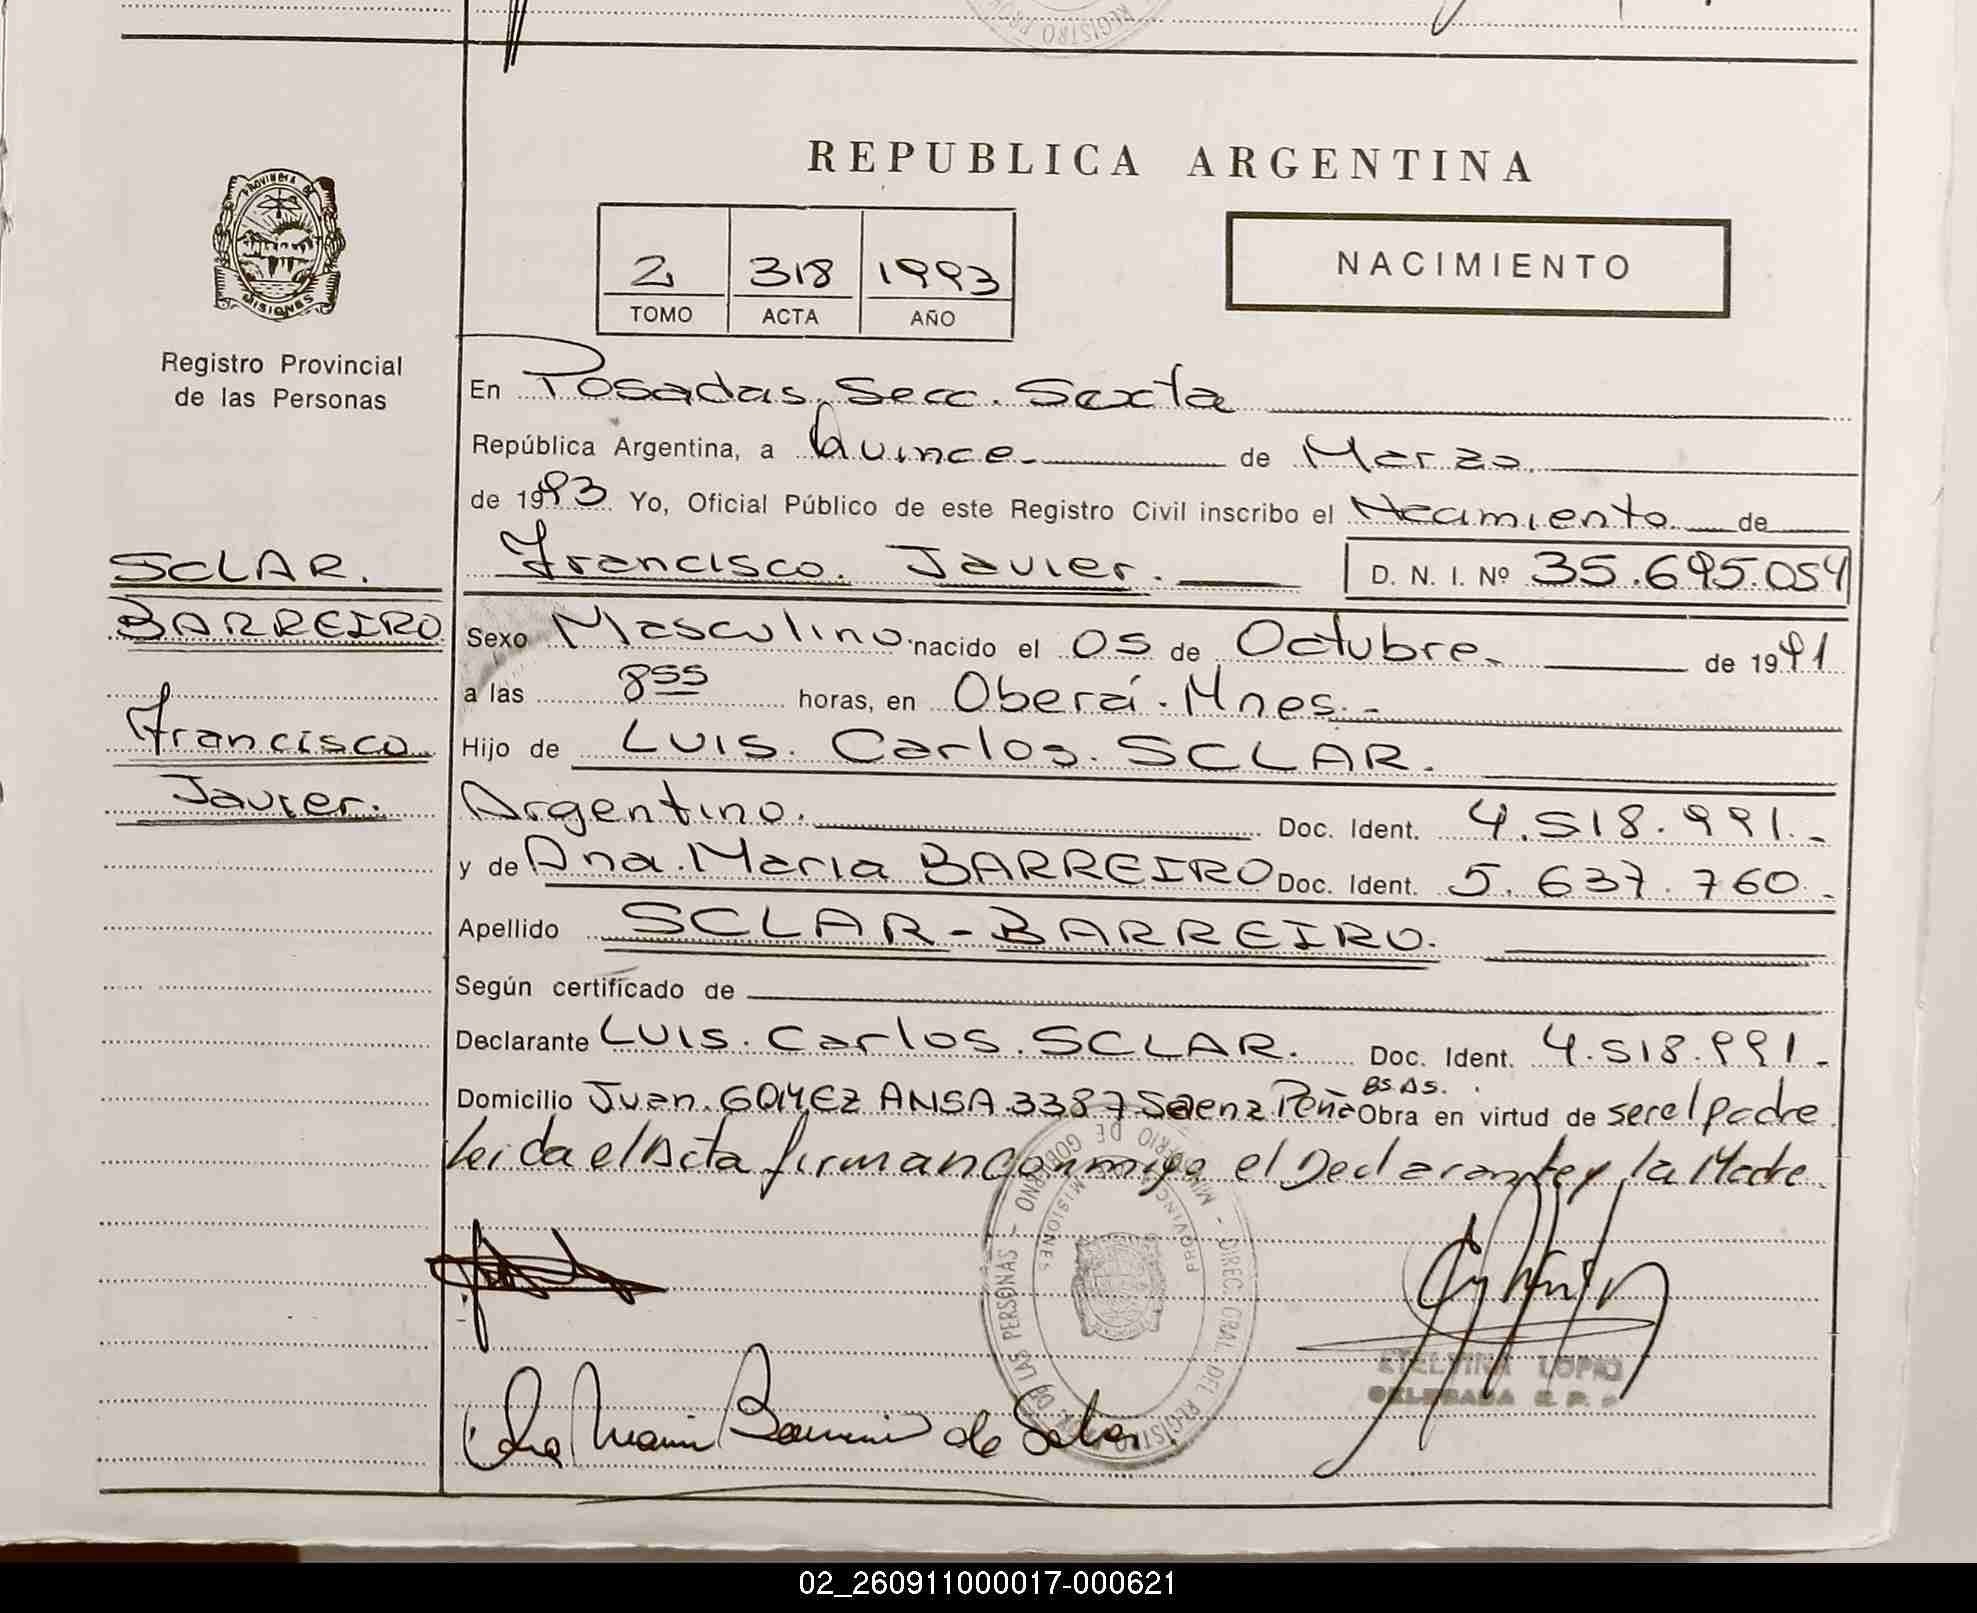 REPUBLICA ARGENTINA
PROVINCIA DE
MISIONES
2 318 1993
TOMO ACTA AÑO
NACIMIENTO
Registro Provincial
de las Personas
En Posadas, Secc. Sexta
República Argentina, a Quince de Marzo
de 1993 Yo, Oficial Público de este Registro Civil inscribo el Nacimiento de
Francisco. Javier. D. N. I. Nº 35.695.054
SCLAR.
BARREIRO
Francisco
Javier.
Sexo Masculino nacido el 05 de Octubre de 1991
a las 8 55 horas, en Oberá. Mnes.-
Hijo de Luis. Carlos. SCLAR.
Argentino. Doc. Ident. 4.518.991.-
y de Ana. Maria BARREIRO Doc. Ident. 5.637.760.-
Apellido SCLAR-BARREIRO.
Según certificado de
Declarante Luis. Carlos. SCLAR. Doc. Ident. 4.518.991.-
Domicilio Juan. GOMEZ ANSA 3387 Saenz Peña BS.AS. Obra en virtud de ser el padre
Leida el Acta firman conmigo el Declarante y la Madre.
MINISTERIO DE GOBIERNO - DIREC. GRAL. DEL REGISTRO DE LAS PERSONAS
PROVINCIA DE MISIONES
Ana Maria Barreiro de Sclar
ETELVINA LOPEZ
DELEGADA R. P. P.
02_260911000017-000621